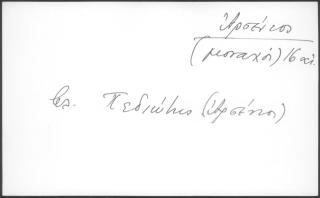 Ἀρσένιος
(μοναχός) 16 αἰ.
βλ. Πεδιώτης (Ἀρσένιος)